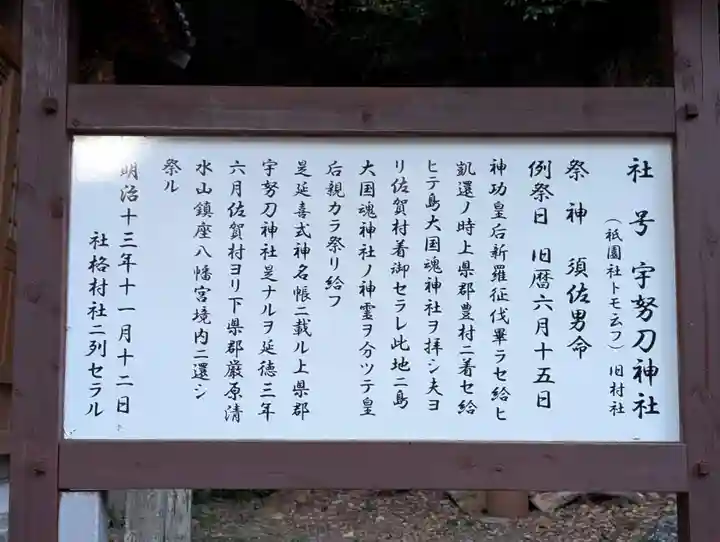 社号 宇努刀神社
(祇園社トモ云フ) 旧村社
祭神 須佐男命
例祭日 旧暦六月十五日
神功皇后新羅征伐畢ラセ給ヒ
凱還ノ時上県郡豊村ニ着セ給
ヒテ島大国魂神社ヲ拝シ夫ヨ
リ佐賀村着御セラレ此地ニ島
大国魂神社ノ神霊ヲ分ツテ皇
后親カラ祭リ給フ
是延喜式神名帳ニ載ル上県郡
宇努刀神社是ナルヲ延徳三年
六月佐賀村ヨリ下県郡厳原清
水山鎮座八幡宮境内ニ還シ
祭ル
明治十三年十一月十二日
社格村社ニ列セラル